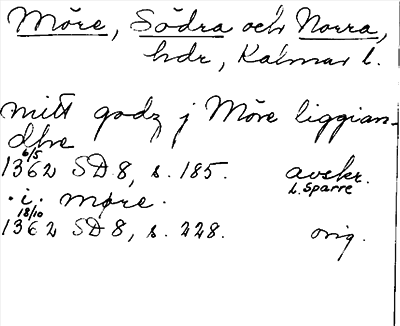 Möre, Södra och Norra,
hdr, Kalmar l.
mitt godz j Möre liggian-
dhe
6/5
1362 SD 8, s. 185. avskr.
L. Sparre
.i. møre.
18/10
1362 SD 8, s. 228. orig.